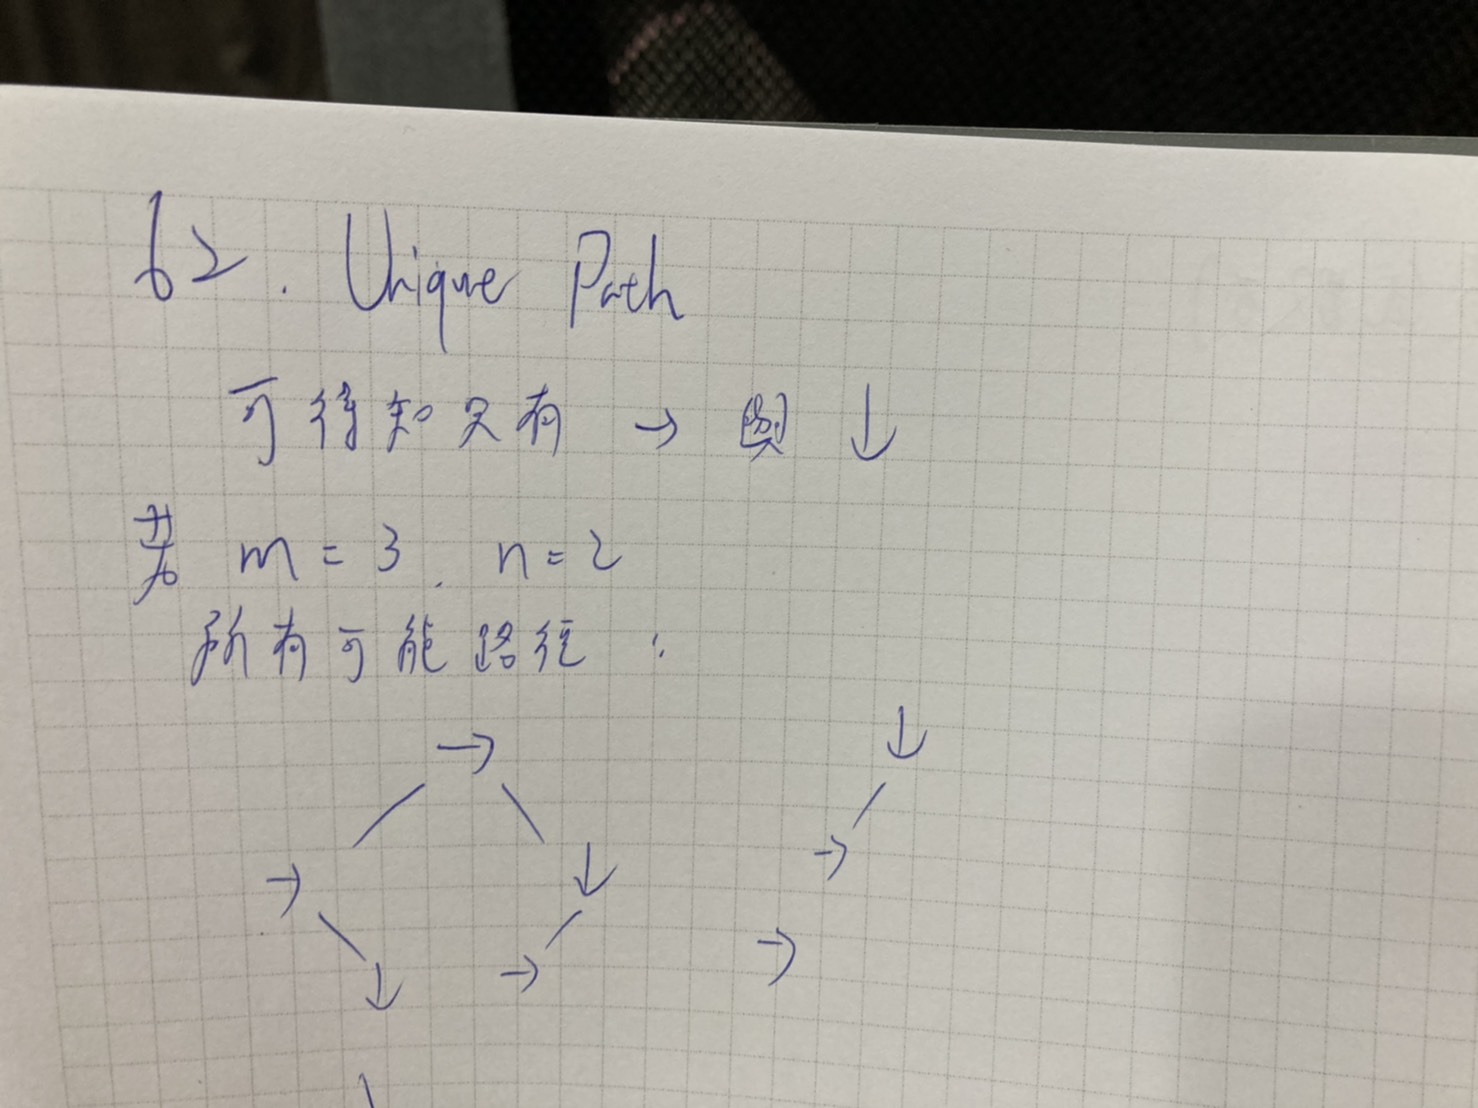 62. Unique Path
可得知只有 → 與 ↓
若 m = 3, n = 2
所有可能路徑:
→ ↓
→ ↓ →
↓ → →